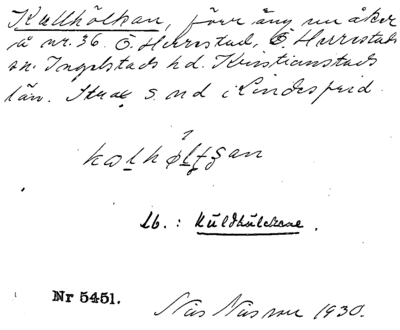 Kullhölkan, förr äng nu åker
å nr. 36. Ö. Herrestad, Ö. Herrestads
sn. Ingelstads hd. Kristianstads
län. Strax S. nd i Lindesfrid.
Lb. : Kuldhulckene.
Nr 5451.
Nils Nilsson 1930.